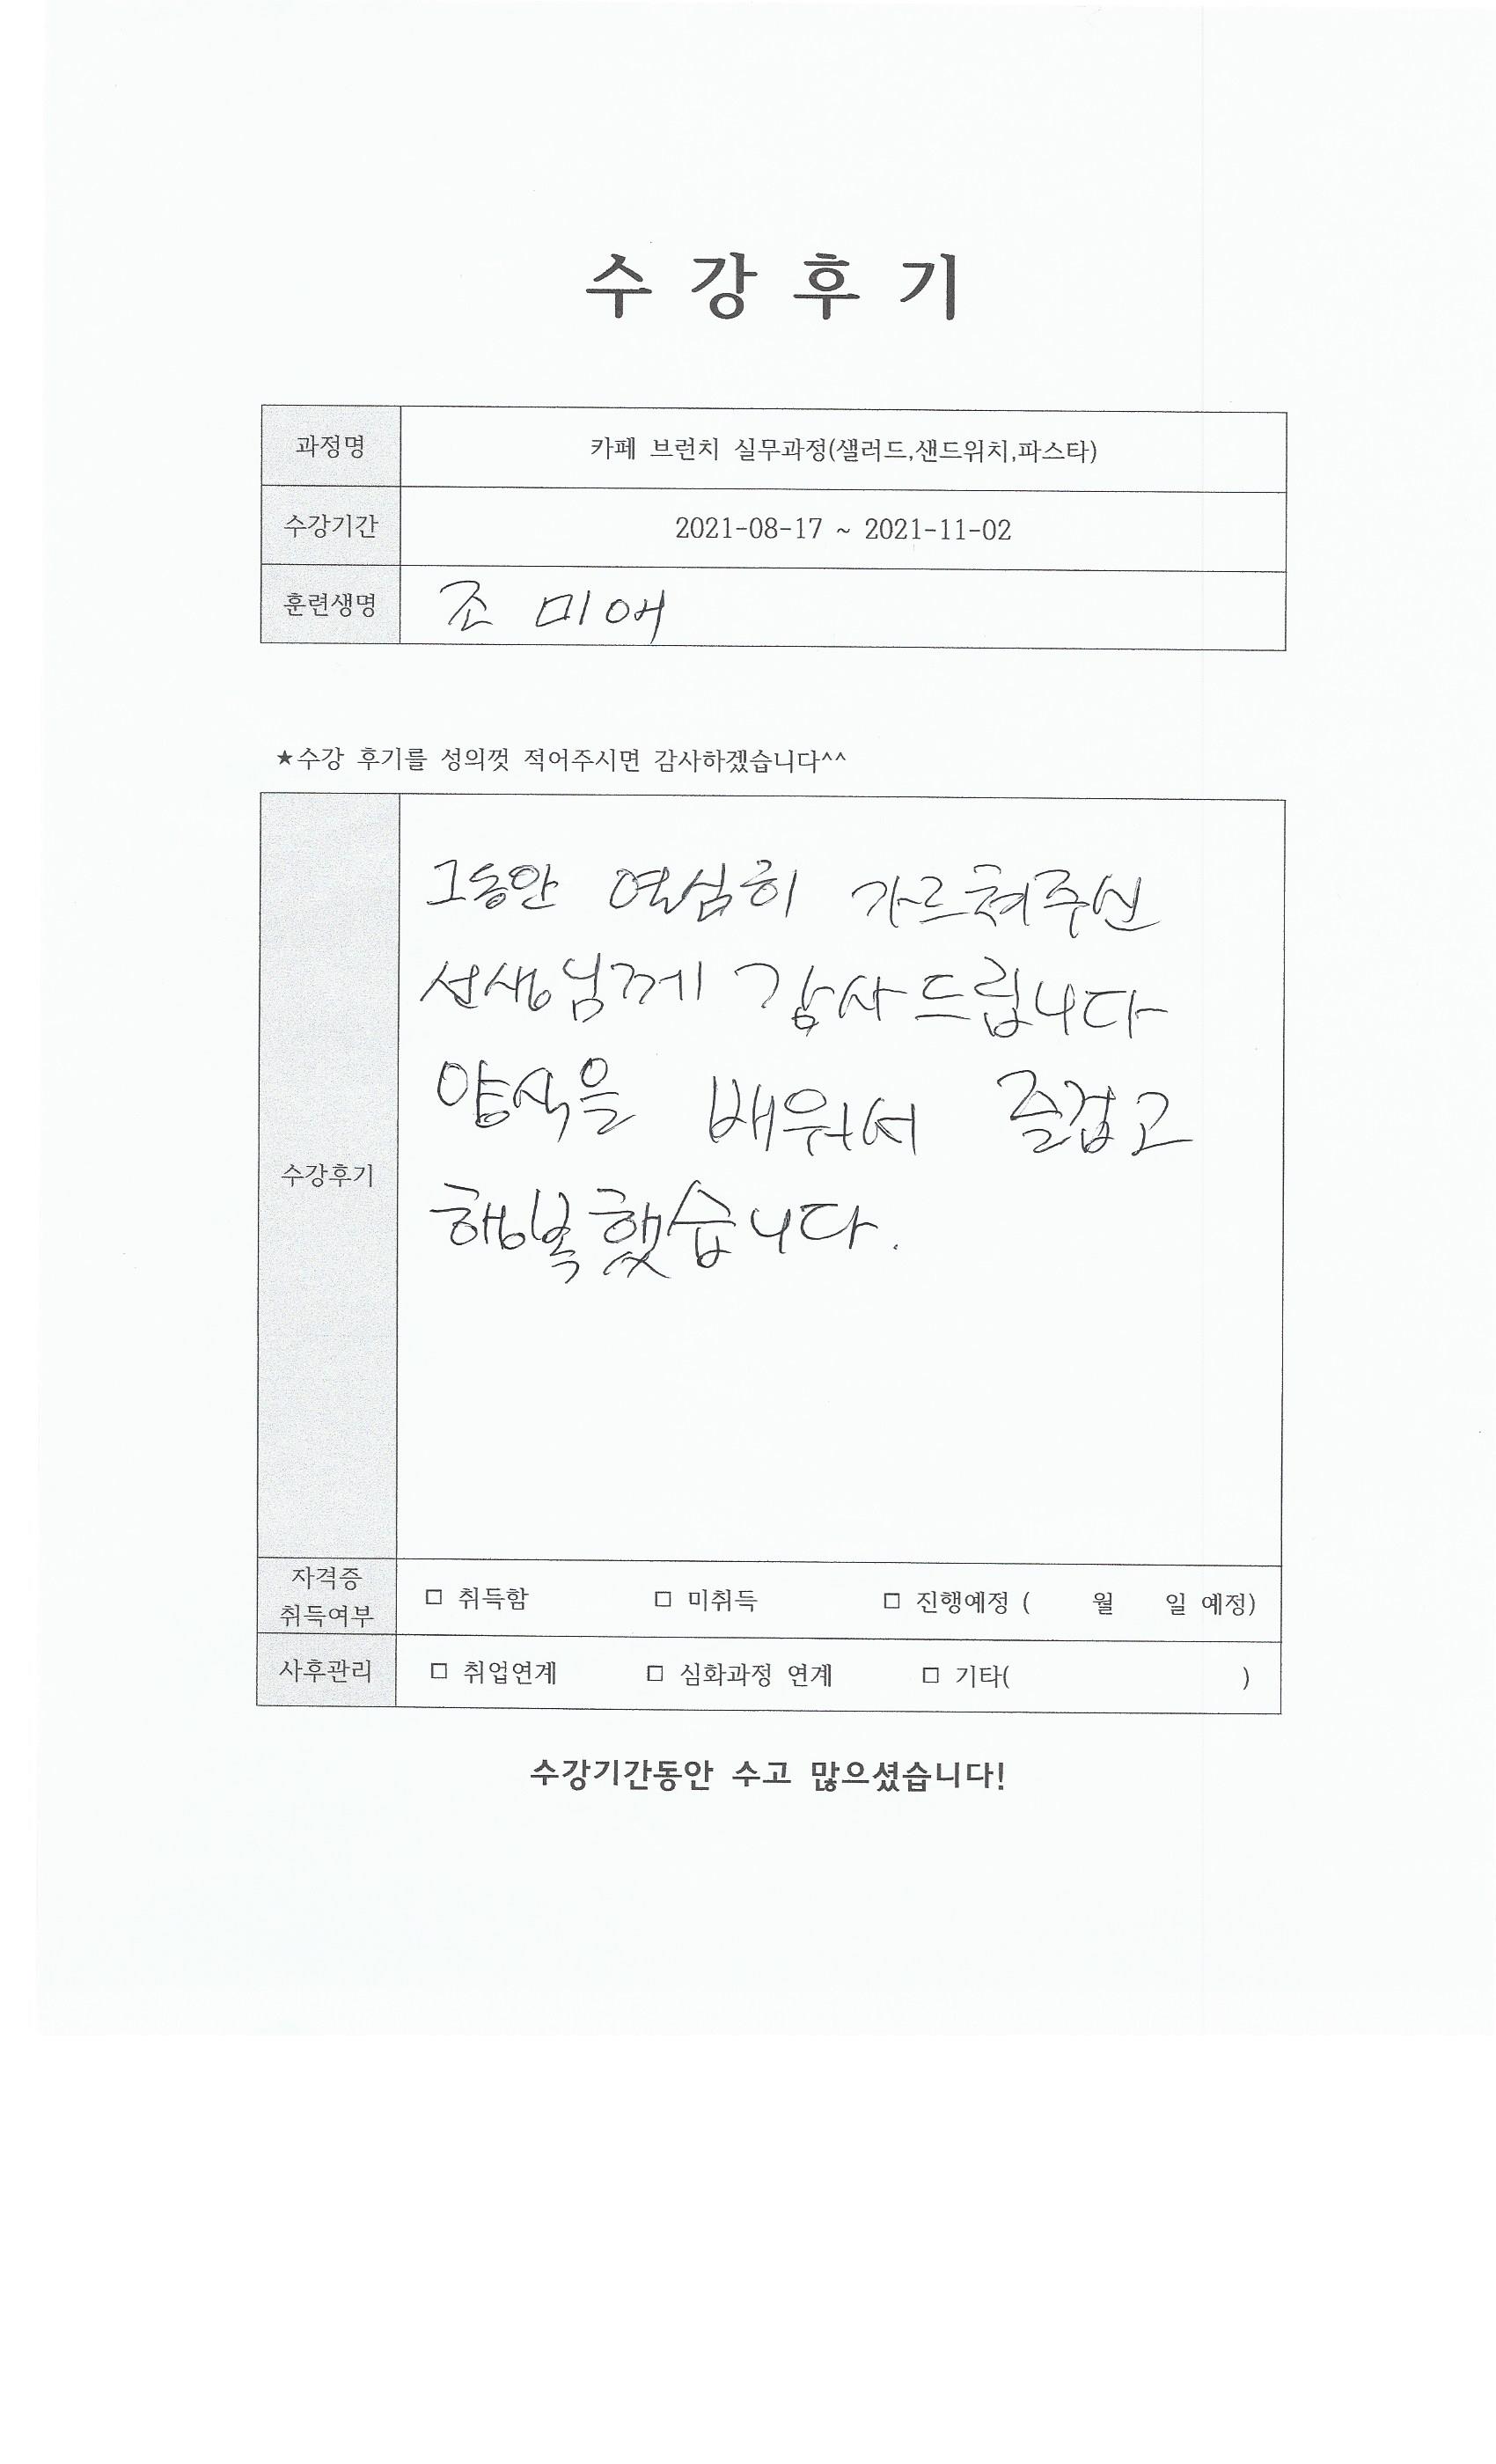 수 강 후 기
과정명 카페 브런치 실무과정(샐러드,샌드위치,파스타)
수강기간 2021-08-17 ~ 2021-11-02
훈련생명 조 미애
★수강 후기를 성의껏 적어주시면 감사하겠습니다^^
수강후기
그동안 열심히 가르쳐주신
선생님께 감사드립니다
양식을 배워서 즐겁고
행복했습니다.
자격증
취득여부
□ 취득함 □ 미취득 □ 진행예정 ( 월 일 예정)
사후관리 □ 취업연계 □ 심화과정 연계 □ 기타( )
수강기간동안 수고 많으셨습니다!